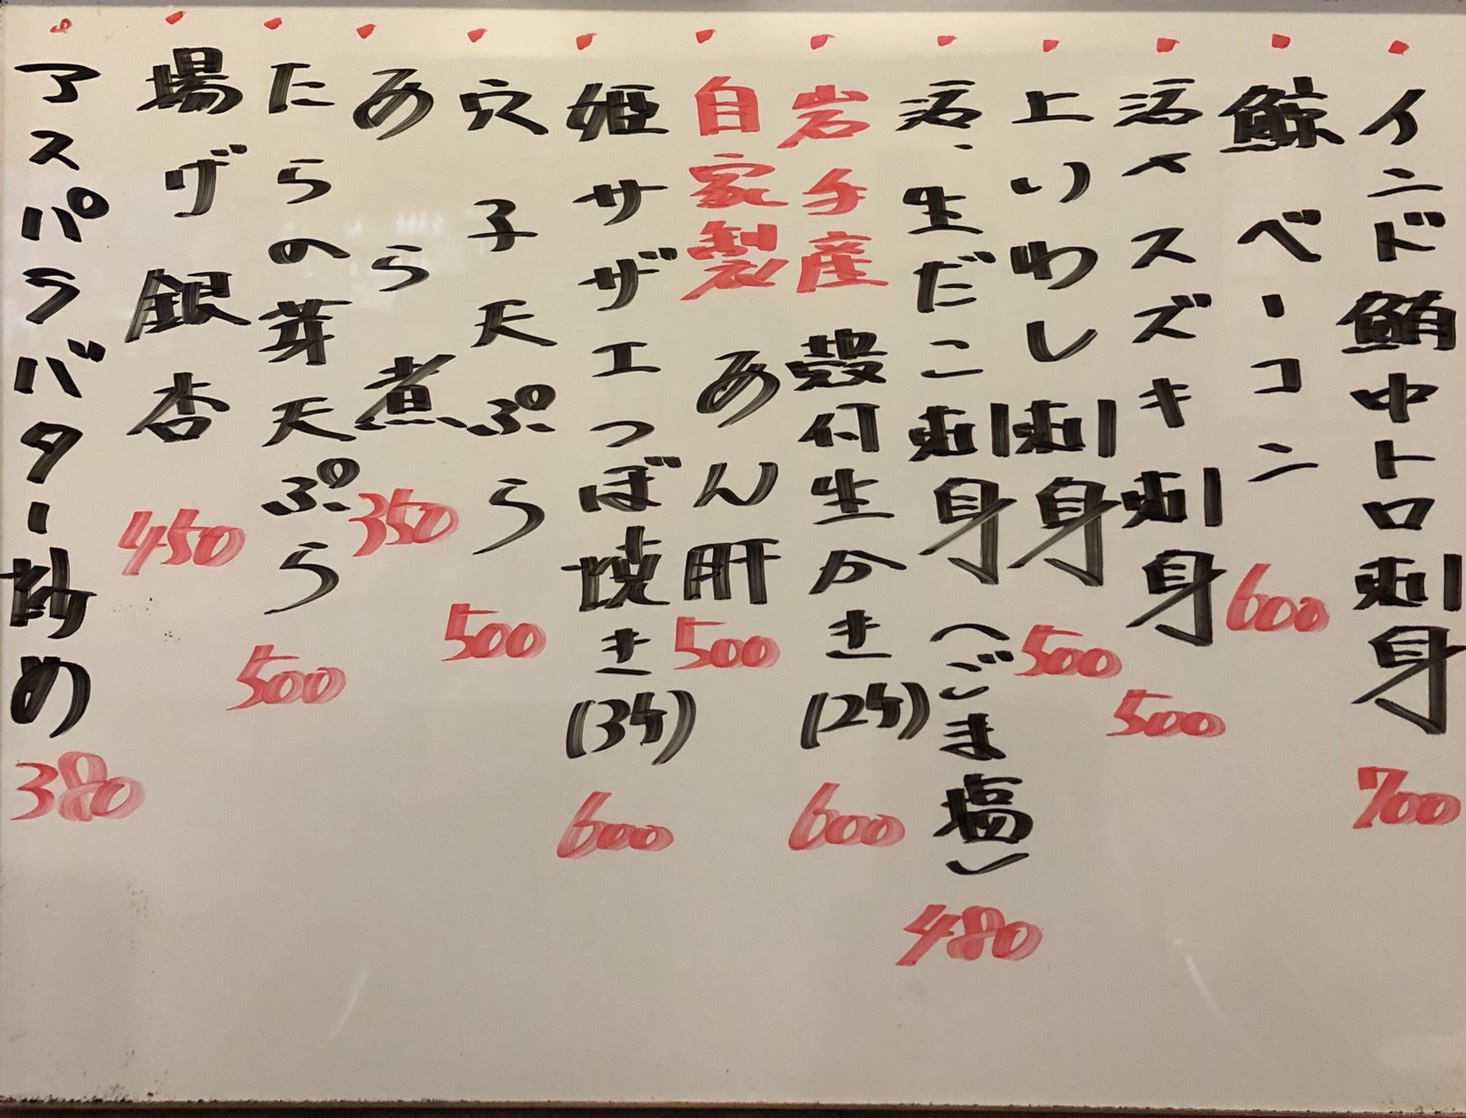 インド鮪中トロ刺身 700
鯨ベーコン 600
活〆スズキ刺身 500
上いわし刺身 500
活、生だこ刺身(ごま塩) 480
岩手産 殻付生かき(2ケ) 600
自家製 あん肝 500
姫サザエつぼ焼き(3ケ) 600
穴子天ぷら 500
あら煮 350
たらの芽天ぷら 500
揚げ銀杏 450
アスパラバター炒め 380